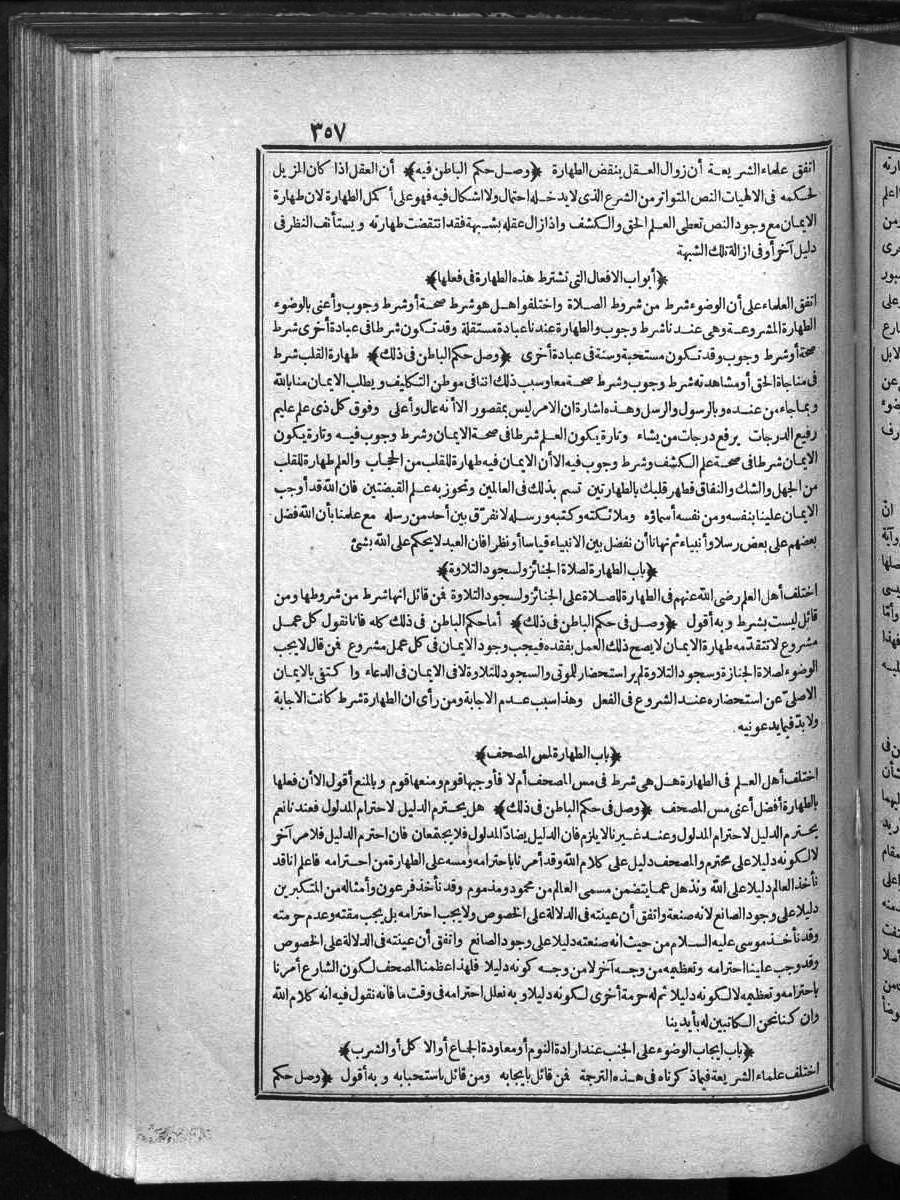 ٣٥٧
اتفق علماء الشريعة أن زوال العقل ينقض الطهارة ﴿وصل حكم الباطن فيه﴾ أن العقل اذا كان المزيل
لحكمه فى الالهيات النص المتواتر من الشرع الذى لا يدخله احتمال ولا اشكال فيه فهو على أكمل الطهارة لان طهارة
الايمان مع وجود النص تعطى العلم الحق والكشف واذا زال عقله بشبهة فقد انتقضت طهارته ويستأنف النظر فى
دليل آخر أو فى ازالة تلك الشبهة
﴿أبواب الافعال التى تشترط هذه الطهارة فى فعلها﴾
اتفق العلماء على أن الوضوء شرط من شروط الصلاة واختلفوا هل هو شرط صحة أو شرط وجوب وأعنى بالوضوء
الطهارة المشروعة وهى عندنا شرط وجوب والطهارة عندنا عبادة مستقلة وقد تكون شرطا فى عبادة أخرى شرط
صحة أو شرط وجوب وقد تكون مستحبة وسنة فى عبادة أخرى ﴿وصل حكم الباطن فى ذلك﴾ طهارة القلب شرط
فى مناجاة الحق أو مشاهدته شرط وجوب وشرط صحة معا وسبب ذلك اننا فى موطن التكليف ويطلب الايمان منا بالله
وبما جاء من عنده وبالرسول والرسل وهذه اشارة ان الامر ليس بمقصور الا أنه عال وأعلى وفوق كل ذى علم عليم
رفيع الدرجات يرفع درجات من يشاء وتارة يكون العلم شرطا فى صحة الايمان وشرط وجوب فيه وتارة يكون
الايمان شرطا فى صحة علم الكشف وشرط وجوب فيه الا أن الايمان فيه طهارة للقلب من الحجاب والعلم طهارة للقلب
من الجهل والشك والنفاق فطهر قلبك بالطهارتين تسم بذلك فى العالمين وتحوز به علم القبضتين فان الله قد أوجب
الايمان علينا بنفسه ومن نفسه أسماؤه وملائكته وكتبه ورسله لا نفرق بين أحد من رسله مع علمنا بأن الله فضل
بعضهم على بعض رسلا وأنبياء ثم نهانا أن نفضل بين الانبياء قياسا أو نظرا فان العبد لا يحكم على الله بشئ
﴿باب الطهارة لصلاة الجنائز ولسجود التلاوة﴾
اختلف أهل العلم رضى الله عنهم فى الطهارة للصلاة على الجنائز ولسجود التلاوة فمن قائل انها شرط من شروطها ومن
قائل ليست بشرط وبه أقول ﴿وصل فى حكم الباطن فى ذلك﴾ أما حكم الباطن فى ذلك كله فانا نقول كل عمل
مشروع لا تتقدمه طهارة الايمان لا يصح ذلك العمل بفقده فيجب وجود الايمان فى كل عمل مشروع فمن قال لا يجب
الوضوء لصلاة الجنازة وسجود التلاوة لم ير استحضار للموتى والسجود للتلاوة لا فى الايمان فى الدعاء واكتفى بالايمان
الاصلى عن استحضاره عند الشروع فى الفعل وهذا سبب عدم الاجابة ومن رأى ان الطهارة شرط كانت الاجابة
ولا بد فيما يدعو فيه
﴿باب الطهارة لمس المصحف﴾
اختلف أهل العلم فى الطهارة هل هى شرط فى مس المصحف أم لا فأوجبها قوم ومنعها قوم وبالمنع أقول الا أن فعلها
بالطهارة أفضل أعنى مس المصحف ﴿وصل فى حكم الباطن فى ذلك﴾ هل يحترم الدليل لاحترام المدلول فعندنا نعم
يحترم الدليل لاحترام المدلول وعند غيرنا لا يلزم فان الدليل يضاد المدلول فلا يجتمعان فان احترم الدليل فلامر آخر
لا لكونه دليلا على محترم والمصحف دليل على كلام الله وقد أمرنا باحترامه ومسه على الطهارة من احترامه فاعلم انا قد
نأخذ العالم دليلا على الله ونذهل عما يتضمن مسمى العالم من محمود ومذموم وقد نأخذ فرعون وأمثاله من المتكبرين
دليلا على وجود الصانع لانه صنعة واتفق أن عينته فى الدلالة على الخصوص ولا يجب احترامه بل يجب مقته وعدم حرمته
وقد نأخذ موسى عليه السلام من حيث انه صنعته دليلا على وجود الصانع واتفق أن عينته فى الدلالة على الخصوص
وقد وجب علينا احترامه وتعظيمه من وجه آخر لا من وجه كونه دليلا فلهذا عظمنا المصحف لكون الشارع أمرنا
باحترامه وتعظيمه لا لكونه دليلا ثم له حرمة أخرى لكونه دليلا وبه نعلل احترامه فى وقت ما فانه نقول فيه انه كلام الله
وان كنا نحن الكاتبين له بأيدينا
﴿باب ايجاب الوضوء على الجنب عند ارادة النوم أو معاودة الجماع أو الاكل أو الشرب﴾
اختلف علماء الشريعة فيما ذكرناه فى هذه الترجمة فمن قائل بايجابه ومن قائل باستحبابه وبه أقول ﴿وصل حكم